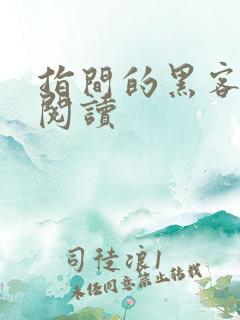 指間的黑客
閱讀
司徒浪1
未經同意禁止轉載